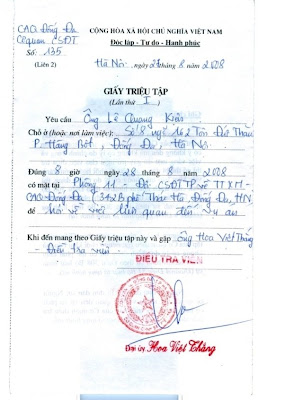 CAQ. Đống Đa
CQuan CSĐT
Số: 135
(Liên 2)
CỘNG HÒA XÃ HỘI CHỦ NGHĨA VIỆT NAM
Độc lập - Tự do - Hạnh phúc
Hà Nội, ngày 27 tháng 8 năm 2008
GIẤY TRIỆU TẬP
(Lần thứ I)
Yêu cầu Ông Lê Quang Kiên
Chỗ ở (hoặc nơi làm việc): Số 8 ngõ 162 Tôn Đức Thắng
P. Hàng Bột, Đống Đa, Hà Nội
Đúng 8 giờ ngày 28 tháng 8 năm 2008
có mặt tại Phòng 11 - Đội CSĐTTP về TTXH -
CAQ Đống Đa (382B phố Thái Hà, Đống Đa, HN)
để hỏi về việc liên quan đến vụ án
Khi đến mang theo Giấy triệu tập này và gặp ông Hoa Việt Thắng
- Điều tra viên
ĐIỀU TRA VIÊN
Đại úy Hoa Việt Thắng